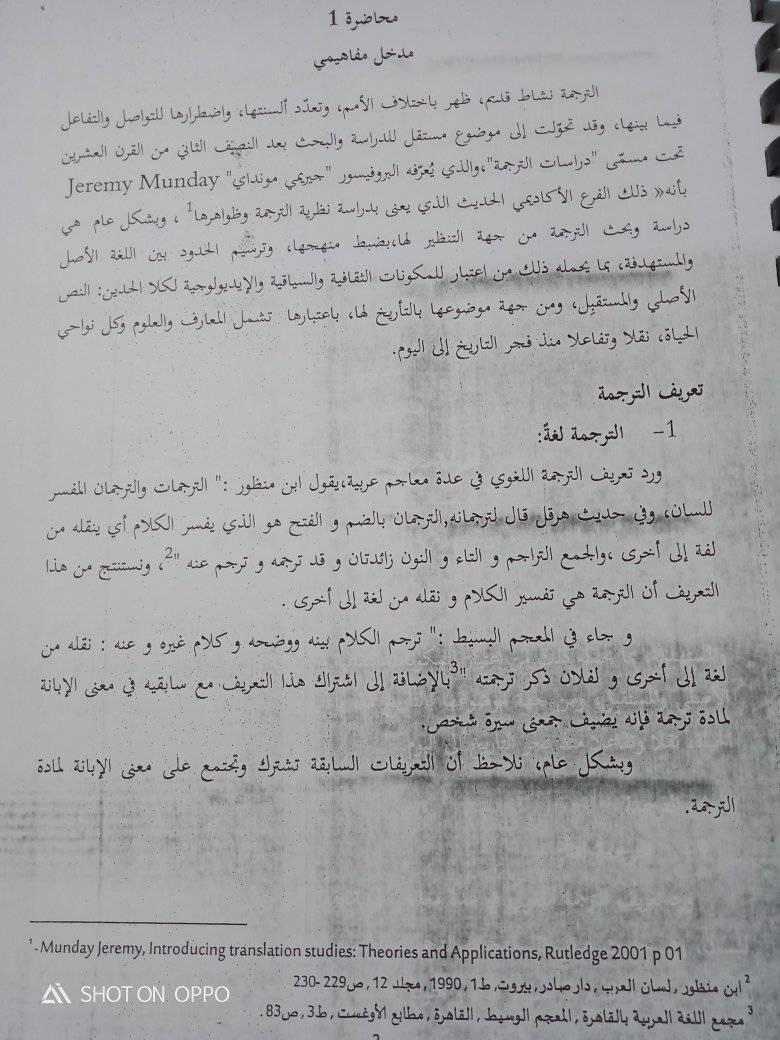 محاضرة 1
مدخل مفاهيمي
الترجمة نشاط قديم، ظهر باختلاف الأمم، وتعدّد ألسنتها، واضطرارها للتواصل والتفاعل
فيما بينها، وقد تحوّلت إلى موضوع مستقل للدراسة والبحث بعد النصف الثاني من القرن العشرين
تحت مسمّى "دراسات الترجمة"،والذي يُعرّفه البروفيسور "جيريمي مونداي" Jeremy Munday
بأنه« ذلك الفرع الأكاديمي الحديث الذي يعنى بدراسة نظرية الترجمة وظواهرها1 ، وبشكل عام هي
دراسة وبحث الترجمة من جهة التنظير لها،بضبط منهجها، وترسيم الحدود بين اللغة الأصل
والمستهدفة، بما يحمله ذلك من اعتبار للمكونات الثقافية والسياقية والإيديولوجية لكلا الحدين: النص
الأصلي والمستقبِل، ومن جهة موضوعها بالتأريخ لها، باعتبارها تشمل المعارف والعلوم وكل نواحي
الحياة، نقلا وتفاعلا منذ فجر التاريخ إلى اليوم.
تعريف الترجمة
1- الترجمة لغةً:
ورد تعريف الترجمة اللغوي في عدة معاجم عربية،يقول ابن منظور :" الترجمات والترجمان المفسر
للسان، وفي حديث هرقل قال لترجمانه,الترجمان بالضم و الفتح هو الذي يفسر الكلام أي ينقله من
لفة إلى أخرى ،والجمع التراجم و التاء و النون زائدتان و قد ترجمه و ترجم عنه "2، ونستنتج من هذا
التعريف أن الترجمة هي تفسير الكلام و نقله من لغة إلى أخرى .
و جاء في المعجم البسيط :" ترجم الكلام بينه ووضحه و كلام غيره و عنه : نقله من
لغة إلى أخرى و لفلان ذكر ترجمته "3بالإضافة إلى اشتراك هذا التعريف مع سابقيه في معنى الإبانة
لمادة ترجمة فإنه يضيف جمعنى سيرة شخص.
وبشكل عام، نلاحظ أن التعريفات السابقة تشترك وتجتمع على معنى الإبانة لمادة
الترجمة.
1-Munday Jeremy, Introducing translation studies: Theories and Applications, Rutledge 2001 p 01
2 ابن منظور , لسان العرب , دار صادر, بيروت, ط1 ,1990, مجلد 12 , ص229-230
3 مجمع اللغة العربية بالقاهرة , المعجم الوسيط , القاهرة , مطابع الأوفست , ط3 , ص83.
2
SHOT ON OPPO